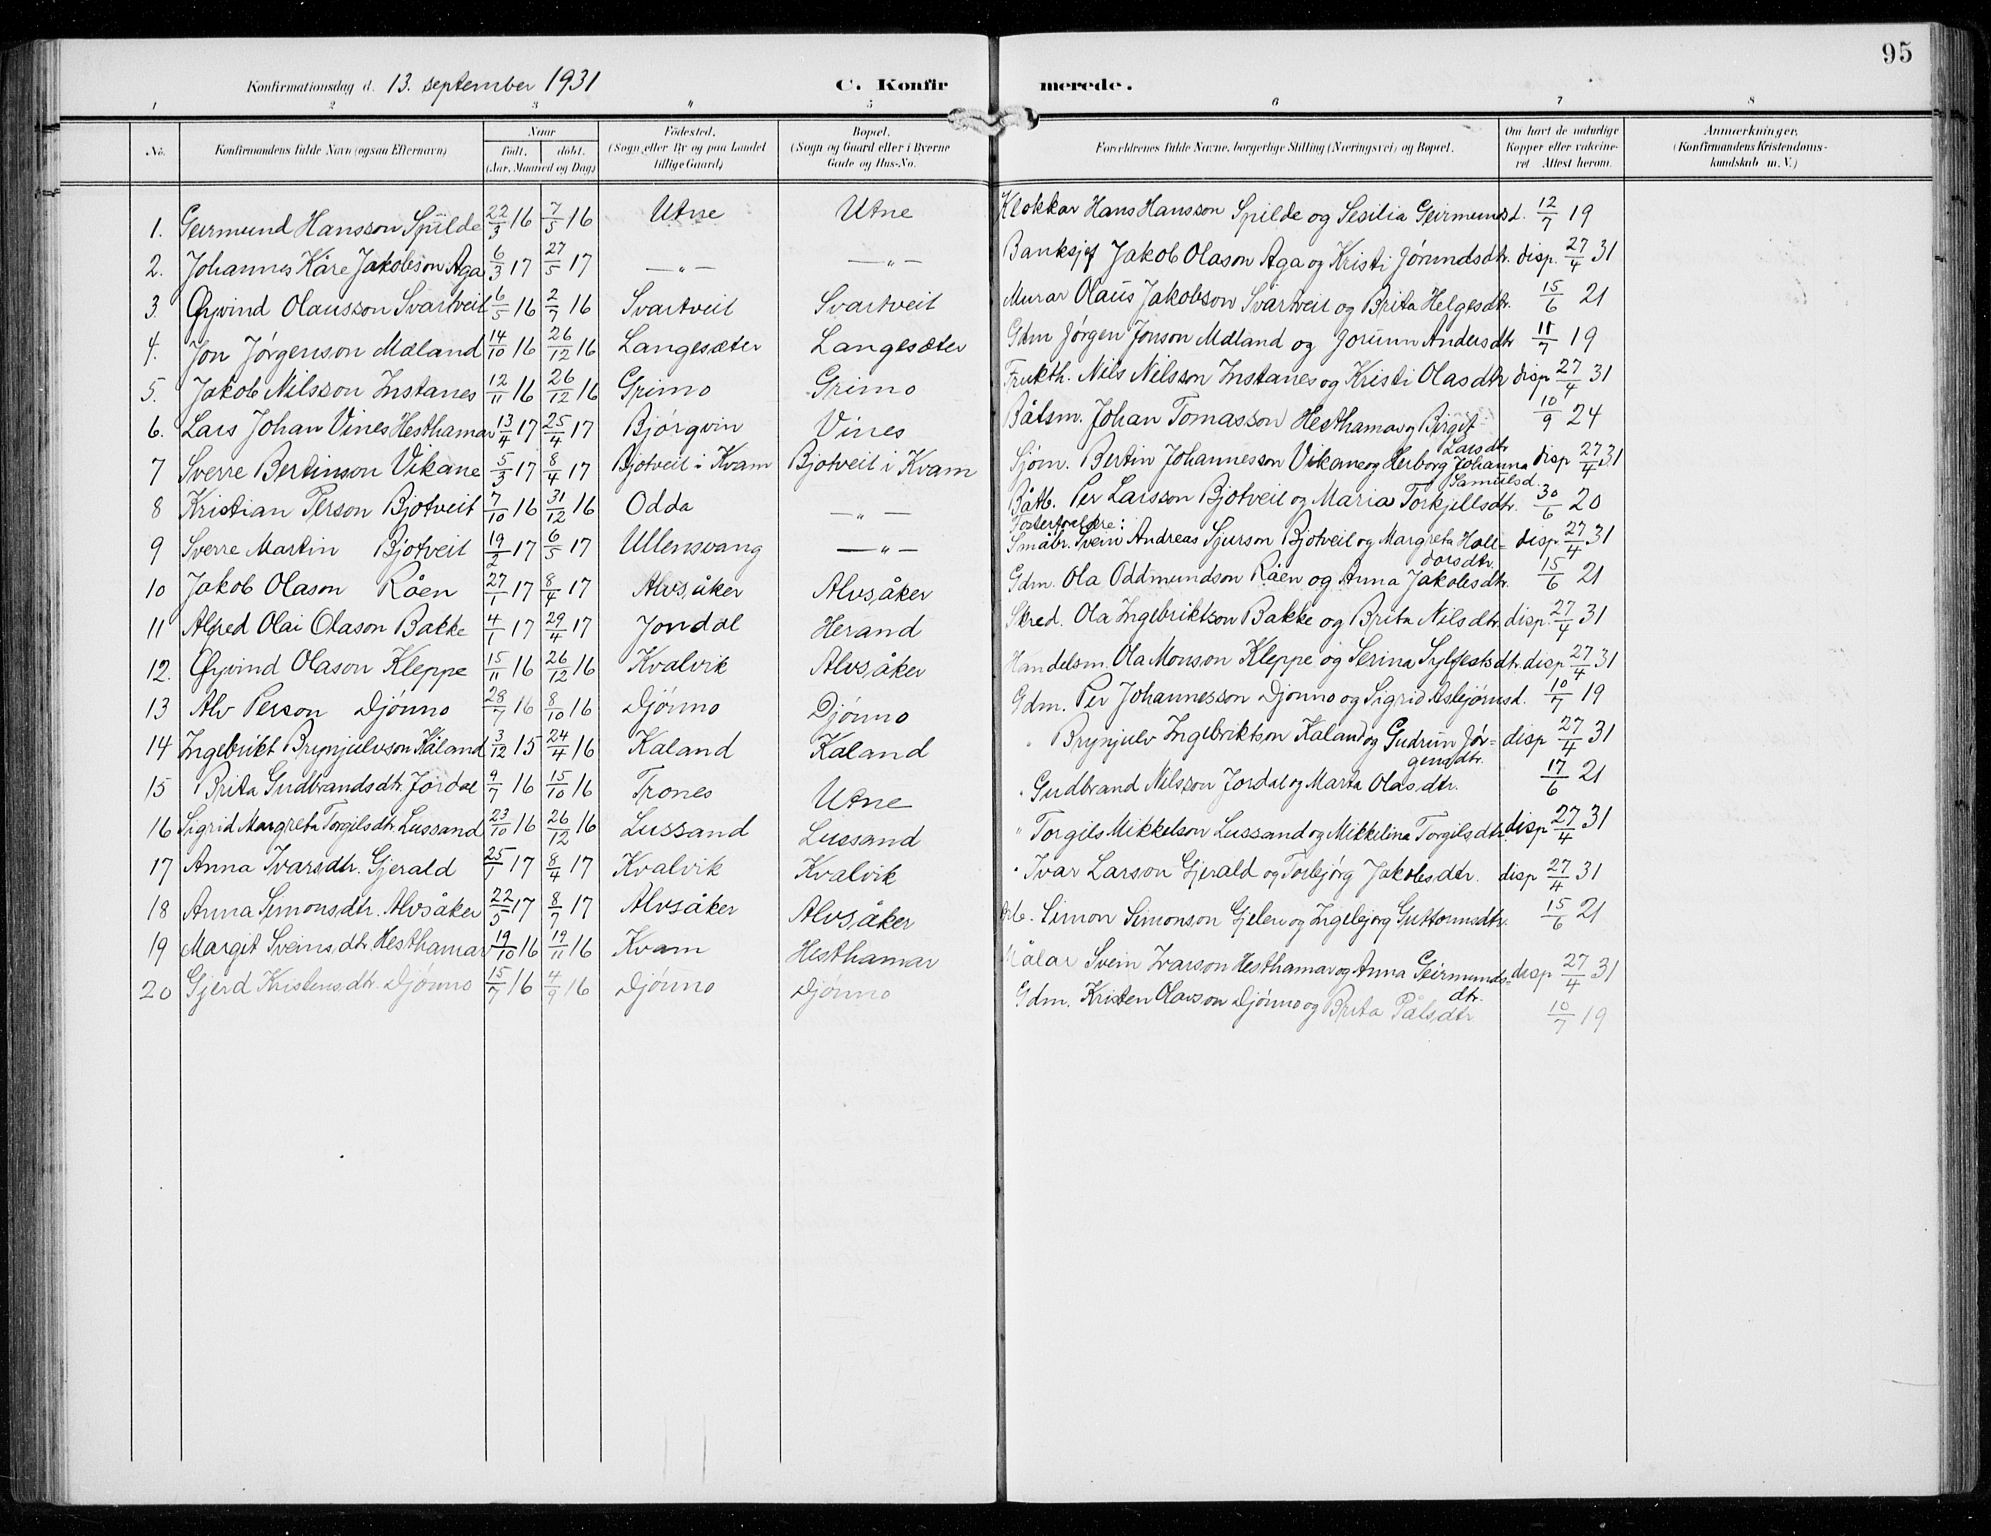 95
Konfirmationsdag d. 13. september 1931 C. Konfir merede.
1 2 3 " 5 6 7 8
No. Konfirmandens fulde Navn (ogsaa Efternavn) Naar født, døbt. (Aar, Maaned og Dag) Fødested. (Sogn eller By og paa Landet tillige Gaard) Bopæl. (Sogn og Gaard eller i Byerne Gade og Hus-No. Forældrenes fulde Navne, borgerlige Stilling (Næringsvei) og Bopæl. Om havt de naturlige Kopper eller vaccineret Attest herom. Anmærkninger. (Konfirmandens Kristendomskundskab m. V.)
1. Geirmund Hansson Spilde 22/3 16 7/5 16 Utne Utne Klokkar Hans Hansson Spilde og Sesilia Geirmundsd. 12/7 19
2. Johannes Kåre Jakobson Aga 6/3 17 27/5 17 — " — — " — Banksjef Jakob Olason Aga og Kristi Jørundsdtr. disp. 27/4 31
3. Øyvind Olausson Svartveit 6/5 16 2/7 16 Svartveit Svartveit Murar Olaus Jakobson Svartveit og Brita Helgesdtr. 15/6 21
4. Jon Jørgenson Mæland 14/10 16 26/12 16 Langesæter Langesæter Gdm Jørgen Jonson Mæland og Jorunn Andersdtr 11/7 19
5. Jakob Nilsson Instanes 12/11 16 26/12 16 Grimo Grimo Frukth. Nils Nilsson Instanes og Kristi Olasdtr disp 27/4 31
6. Lars Johan Vines Hesthamar 13/4 17 25/4 17 Bjørgvin Vines Båtsm. Johan Tomasson Hesthamar og Birgit Larsdtr 10/9 24
7 Sverre Bertinson Vikane 5/3 17 8/4 17 Bjotveit i Kvam Bjotveit i Kvam Sjøm. Bertin Johannesson Vikane og Herborg Johanna Samuelsd. disp 27/4 31
8 Kristian Person Bjotveit 7/10 16 31/12 16 Odda — " — Båtb. Per Larsson Bjotveit og Maria Torkjellsdtr. 30/6 20
9 Sverre Martin Bjotveit 19/2 17 6/5 17 Ullensvang — " — Fosterforeldre: Småbr. Svein Andreas Sjurson Bjotveit og Margreta Halldorsdtr. disp. 27/4 31
10 Jakob Olason Råen 27/1 17 8/4 17 Alvsåker Alvsåker Gdm. Ola Oddmundson Råen og Anna Jakobsdtr. 15/6 21
11 Alfred Olai Olason Bakke 4/1 17 29/4 17 Jondal Herand Skred. Ola Ingebriktson Bakke og Brita Nilsdtr. disp. 27/4 31
12. Øyvind Olason Kleppe 15/11 16 26/12 16 Kvalvik Alvsåker Handelsm. Ola Monson Kleppe og Serina Sylfestsdtr. disp 27/4 31
13 Alv Person Djønno 28/7 16 8/10 16 Djønno Djønno Gdm. Per Johannesson Djønno og Sigrid Asbjørnsd. 10/7 19
14 Ingebrikt Brynjulvson Kåland 3/12 15 24/4 16 Kaland Kaland " Brynjulv Ingebriktson Kaland og Gudrun Jørgensdtr. disp 27/4 31
15 Brita Gudbrandsdtr. Jordal 9/7 16 15/10 16 Trones Utne " Gudbrand Nilsson Jordal og Marta Olasdtr. 17/6 21
16 Sigrid Margreta Torgilsdtr. Lussand 23/10 16 26/12 16 Lussand Lussand " Torgils Mikkelson Lussand og Mikkelina Torgilsdtr. disp 27/4 31
17 Anna Ivarsdtr. Gjerald 25/1 17 8/4 17 Kvalvik Kvalvik " Ivar Larson Gjerald og Torbjørg Jakobsdtr. disp 27/4 31
18 Anna Simonsdtr. Alvsåker 22/5 17 8/7 17 Alvsåker Alvsåker Simon Simonson Gjelen og Ingebjørg Guttormsdtr. 15/6 21
19 Margit Sveinsdtr. Hesthamar 19/10 16 19/11 16 Kvam Hesthamar Målar Svein Ivarson Hesthamar og Anna Geirmundsdtr. disp 27/4 31
20 Gjerd Kristensdtr. Djønno 15/7 16 4/9 16 Djønno Djønno Gdm. Kristen Olavson Djønno og Brita Pålsdtr 10/7 19